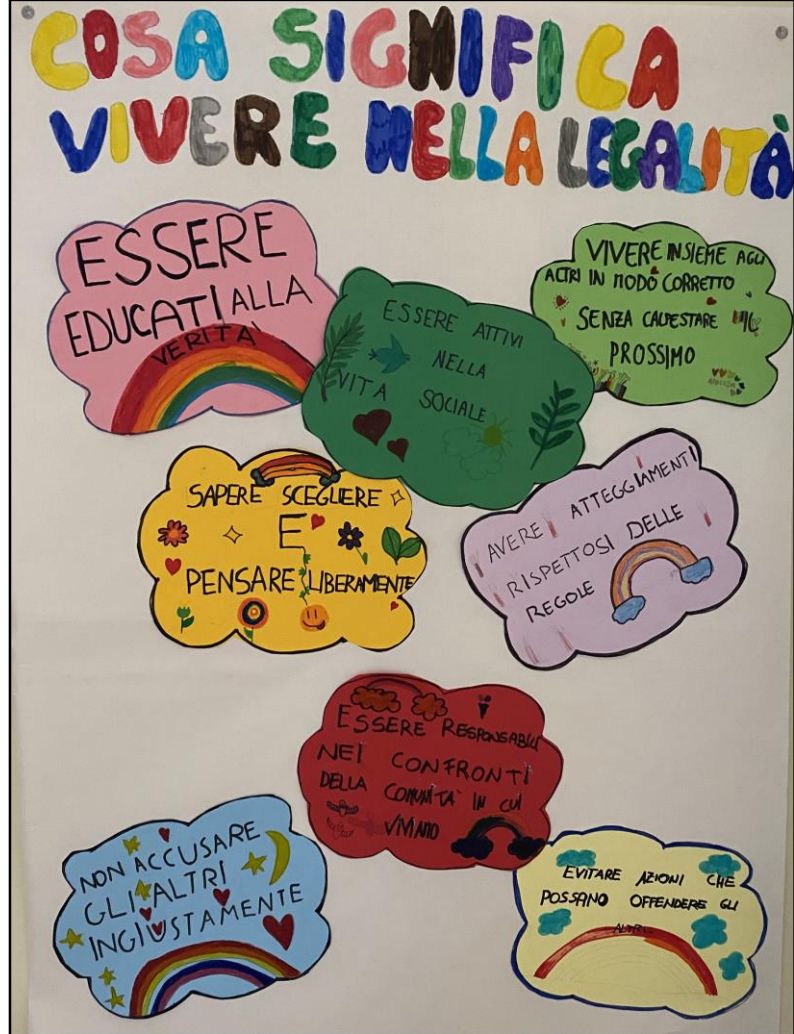 COSA SIGNIFICA
VIVERE NELLA LEGALITÀ
ESSERE
EDUCATI ALLA
VERITÀ
ESSERE ATTIVI
NELLA
VITA SOCIALE
VIVERE INSIEME AGLI
ALTRI IN MODO CORRETTO
SENZA CALPESTARE IL
PROSSIMO
SAPERE SCEGLIERE
E
PENSARE LIBERAMENTE
AVERE ATTEGGIAMENTI
RISPETTOSI DELLE
REGOLE
ESSERE RESPONSABILI
NEI CONFRONTI
DELLA COMUNITA' IN CUI
VIVIAMO
NON ACCUSARE
GLI ALTRI
INGIUSTAMENTE
EVITARE AZIONI CHE
POSSANO OFFENDERE GLI
ALTRI